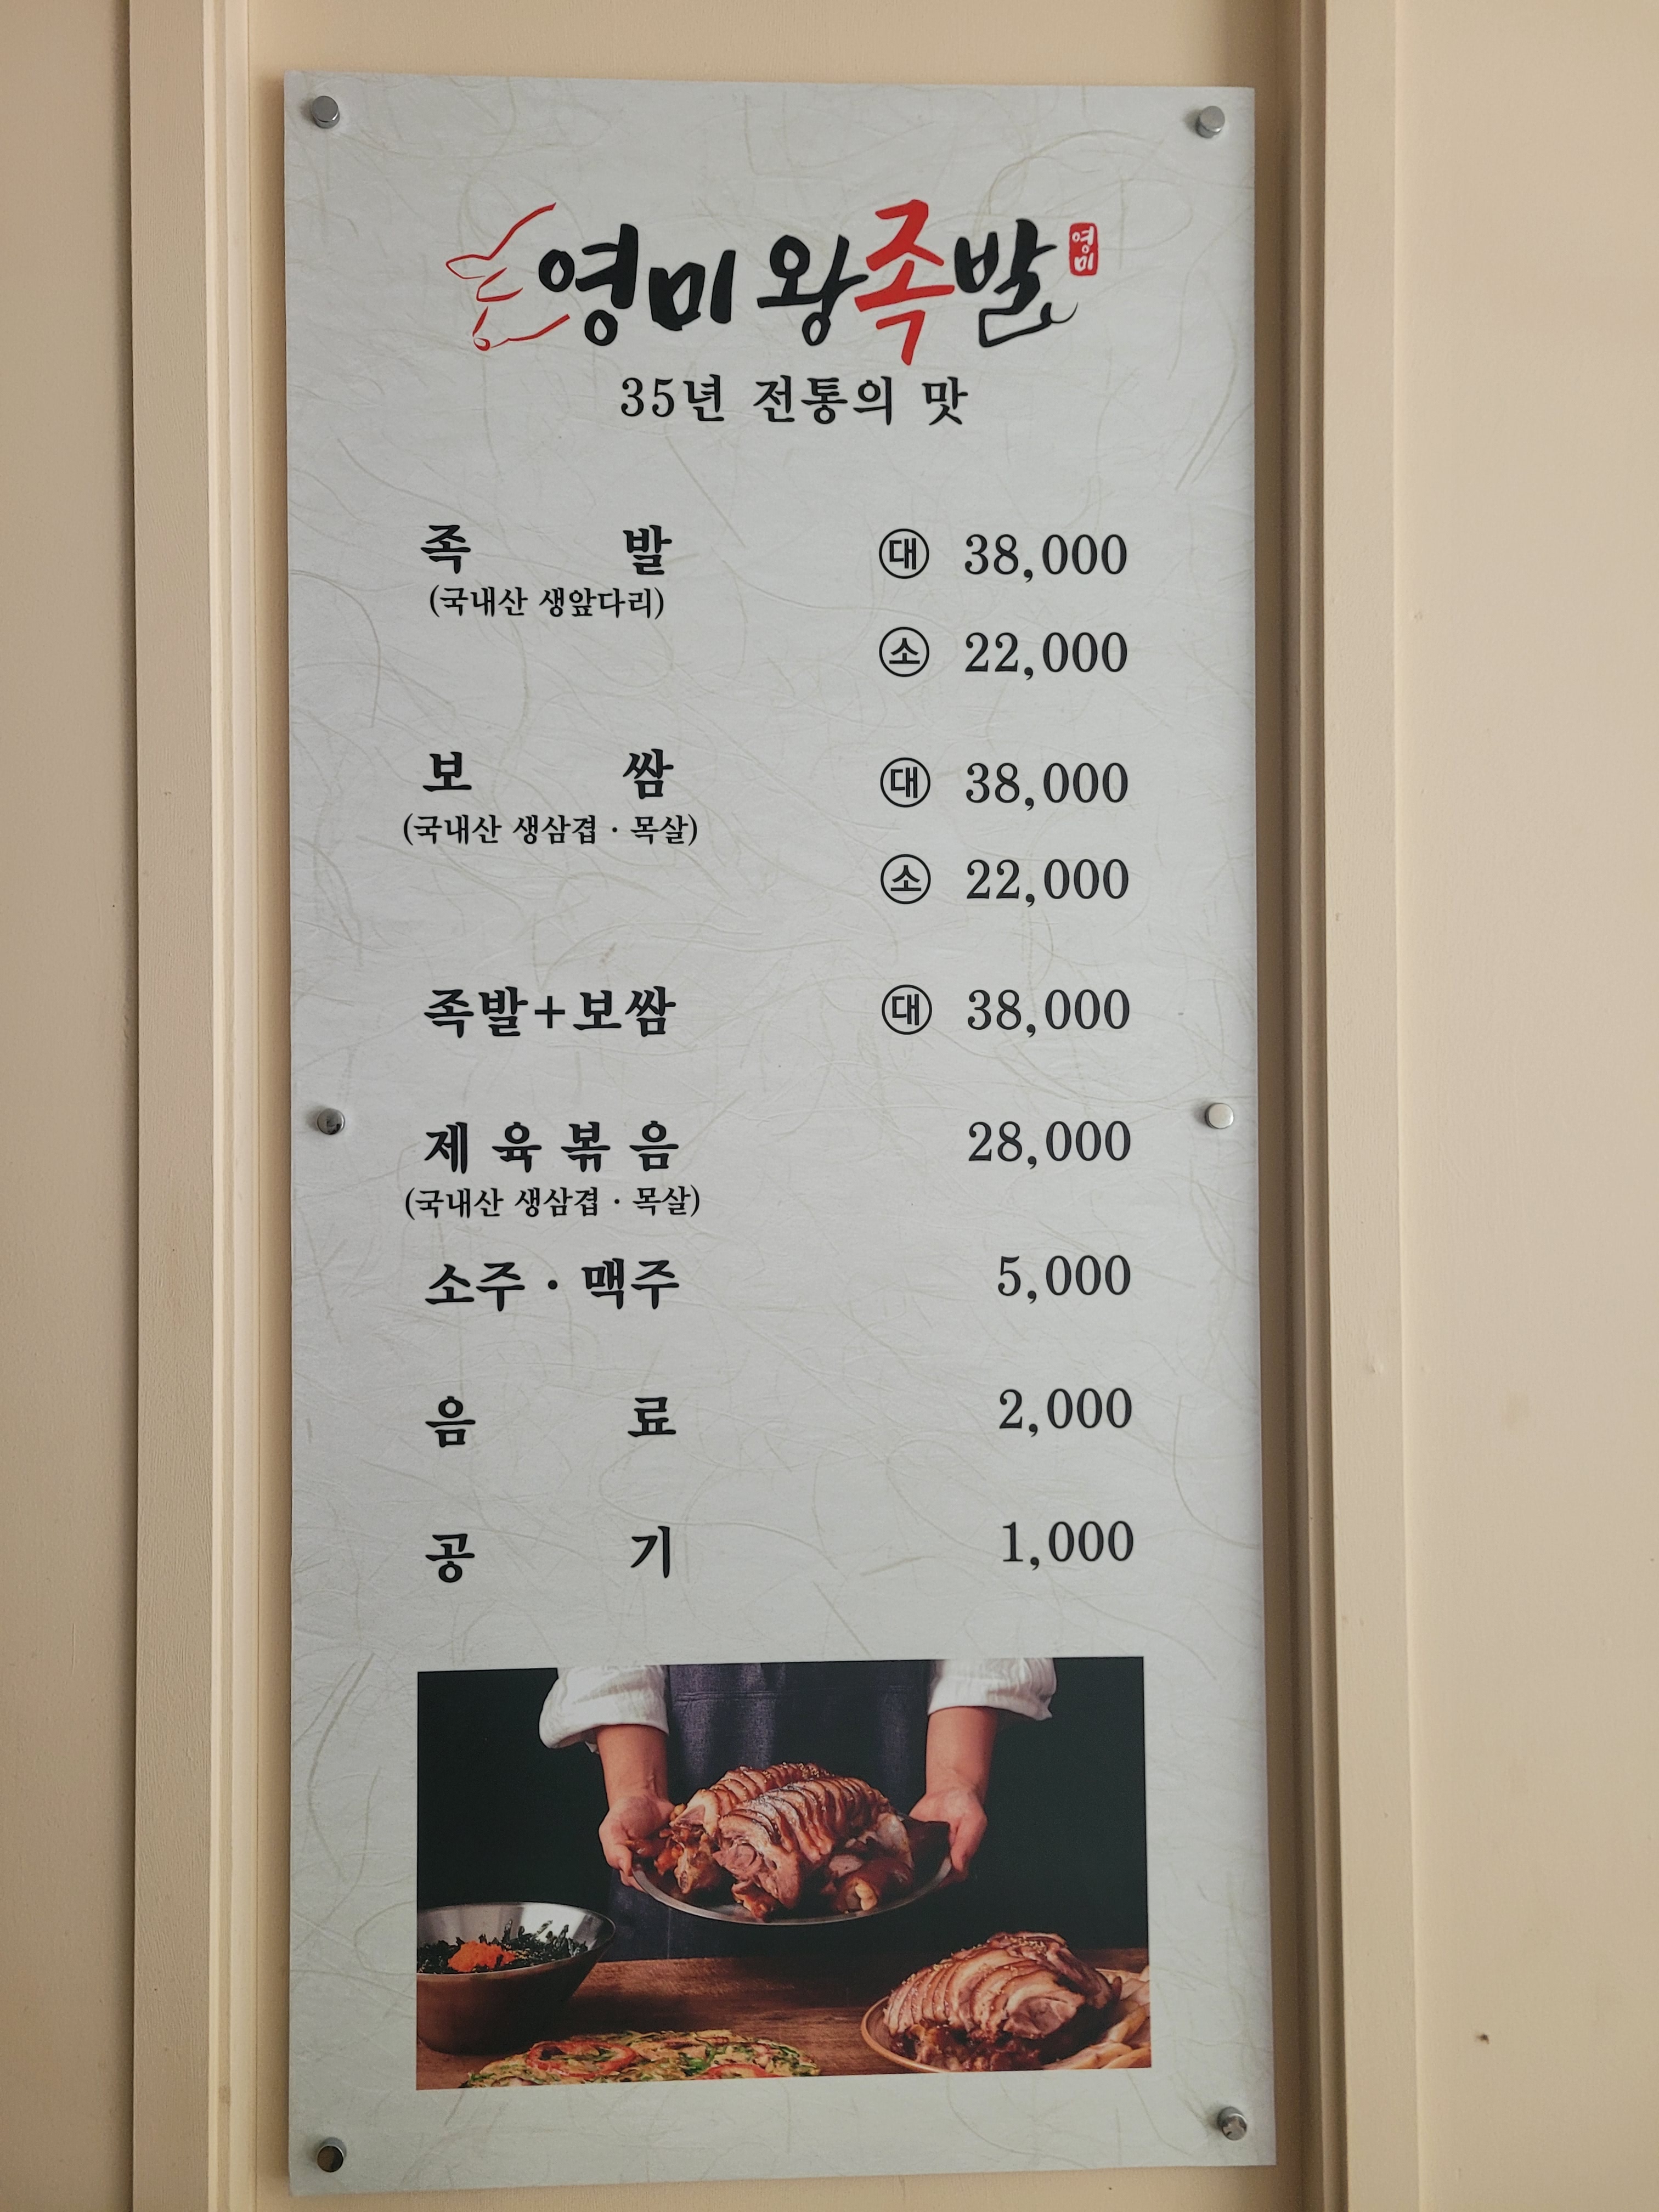 영미왕족발 영미
35년 전통의 맛
족발 대 38,000
(국내산 생앞다리)
소 22,000
보쌈 대 38,000
(국내산 생삼겹 · 목살)
소 22,000
족발+보쌈 대 38,000
제육볶음 28,000
(국내산 생삼겹 · 목살)
소주 · 맥주 5,000
음료 2,000
공기 1,000